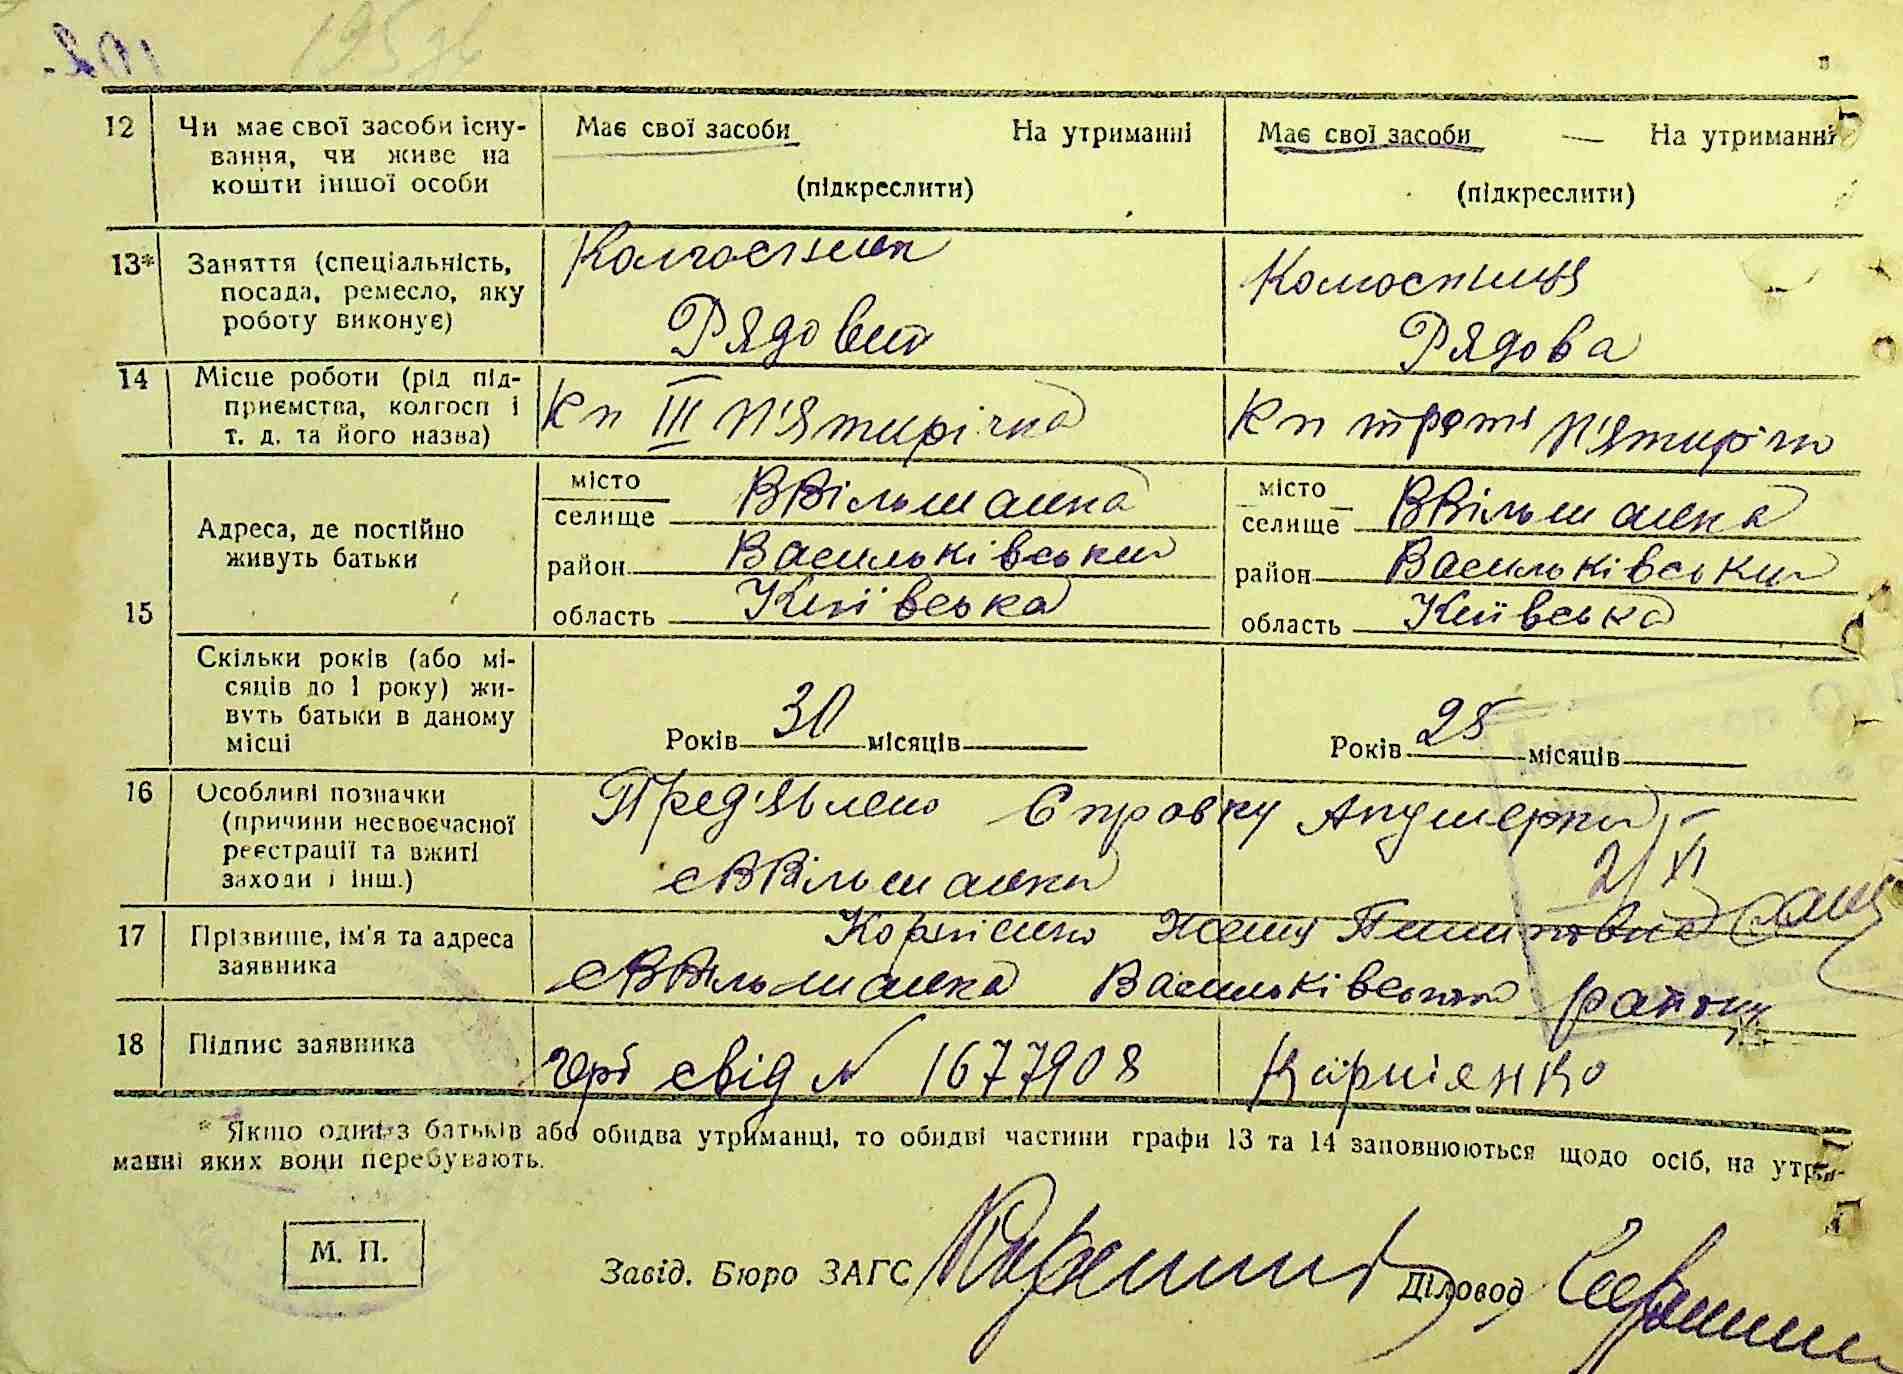 195
12 Чи має свої засоби існу- Має свої засоби На утриманні Має свої засоби — На утриманні
вання, чи живе на
кошти іншої особи (підкреслити) (підкреслити)
13* Заняття (спеціальність, Колгоспник Колгоспниця
посада, ремесло, яку
роботу виконує) Рядовий Рядова
14 Місце роботи (рід під- Кп III П'ятирічка Кп третя П'ятирічка
приємства, колгосп і
т. д. та його назва)
15 Адреса, де постійно
живуть батьки
місто
селище ВВільшанка
район Васильківський
область Київська
місто
селище ВВільшанка
район Васильківський
область Київська
Скільки років (або мі-
сяців до 1 року) жи-
вуть батьки в даному
місці
Років 30 місяців
Років 25 місяців
16 Особливі позначки Пред'явлено Справку Акушерки
(причини несвоєчасної 21/XI
реєстрації та вжиті с ВВільшанки
заходи і інш.)
17 Прізвище, ім'я та адреса Корнієнко
заявника с ВВільшанка Васильківського району
18 Підпис заявника свід № 1677908 Карпієнко
* Якщо один з батьків або обидва утриманці, то обидві частини графи 13 та 14 заповнюються щодо осіб, на утри-
манні яких вони перебувають.
М. П.
Завід. Бюро ЗАГС Діловод